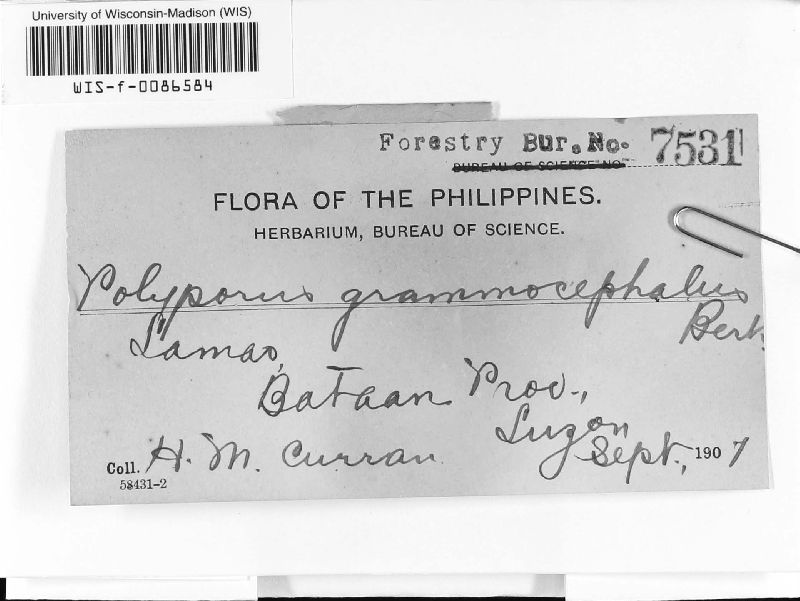 University of Wisconsin-Madison (WIS)
WIS-f-0086584
Forestry Bur. No. 7531
BUREAU OF SCIENCE NO.
FLORA OF THE PHILIPPINES.
HERBARIUM, BUREAU OF SCIENCE.
Polyporus grammocephalus
Berk.
Lamao,
Bataan Prov.,
Luzon
Coll. H. M. Curran Sept., 1907
58431-2